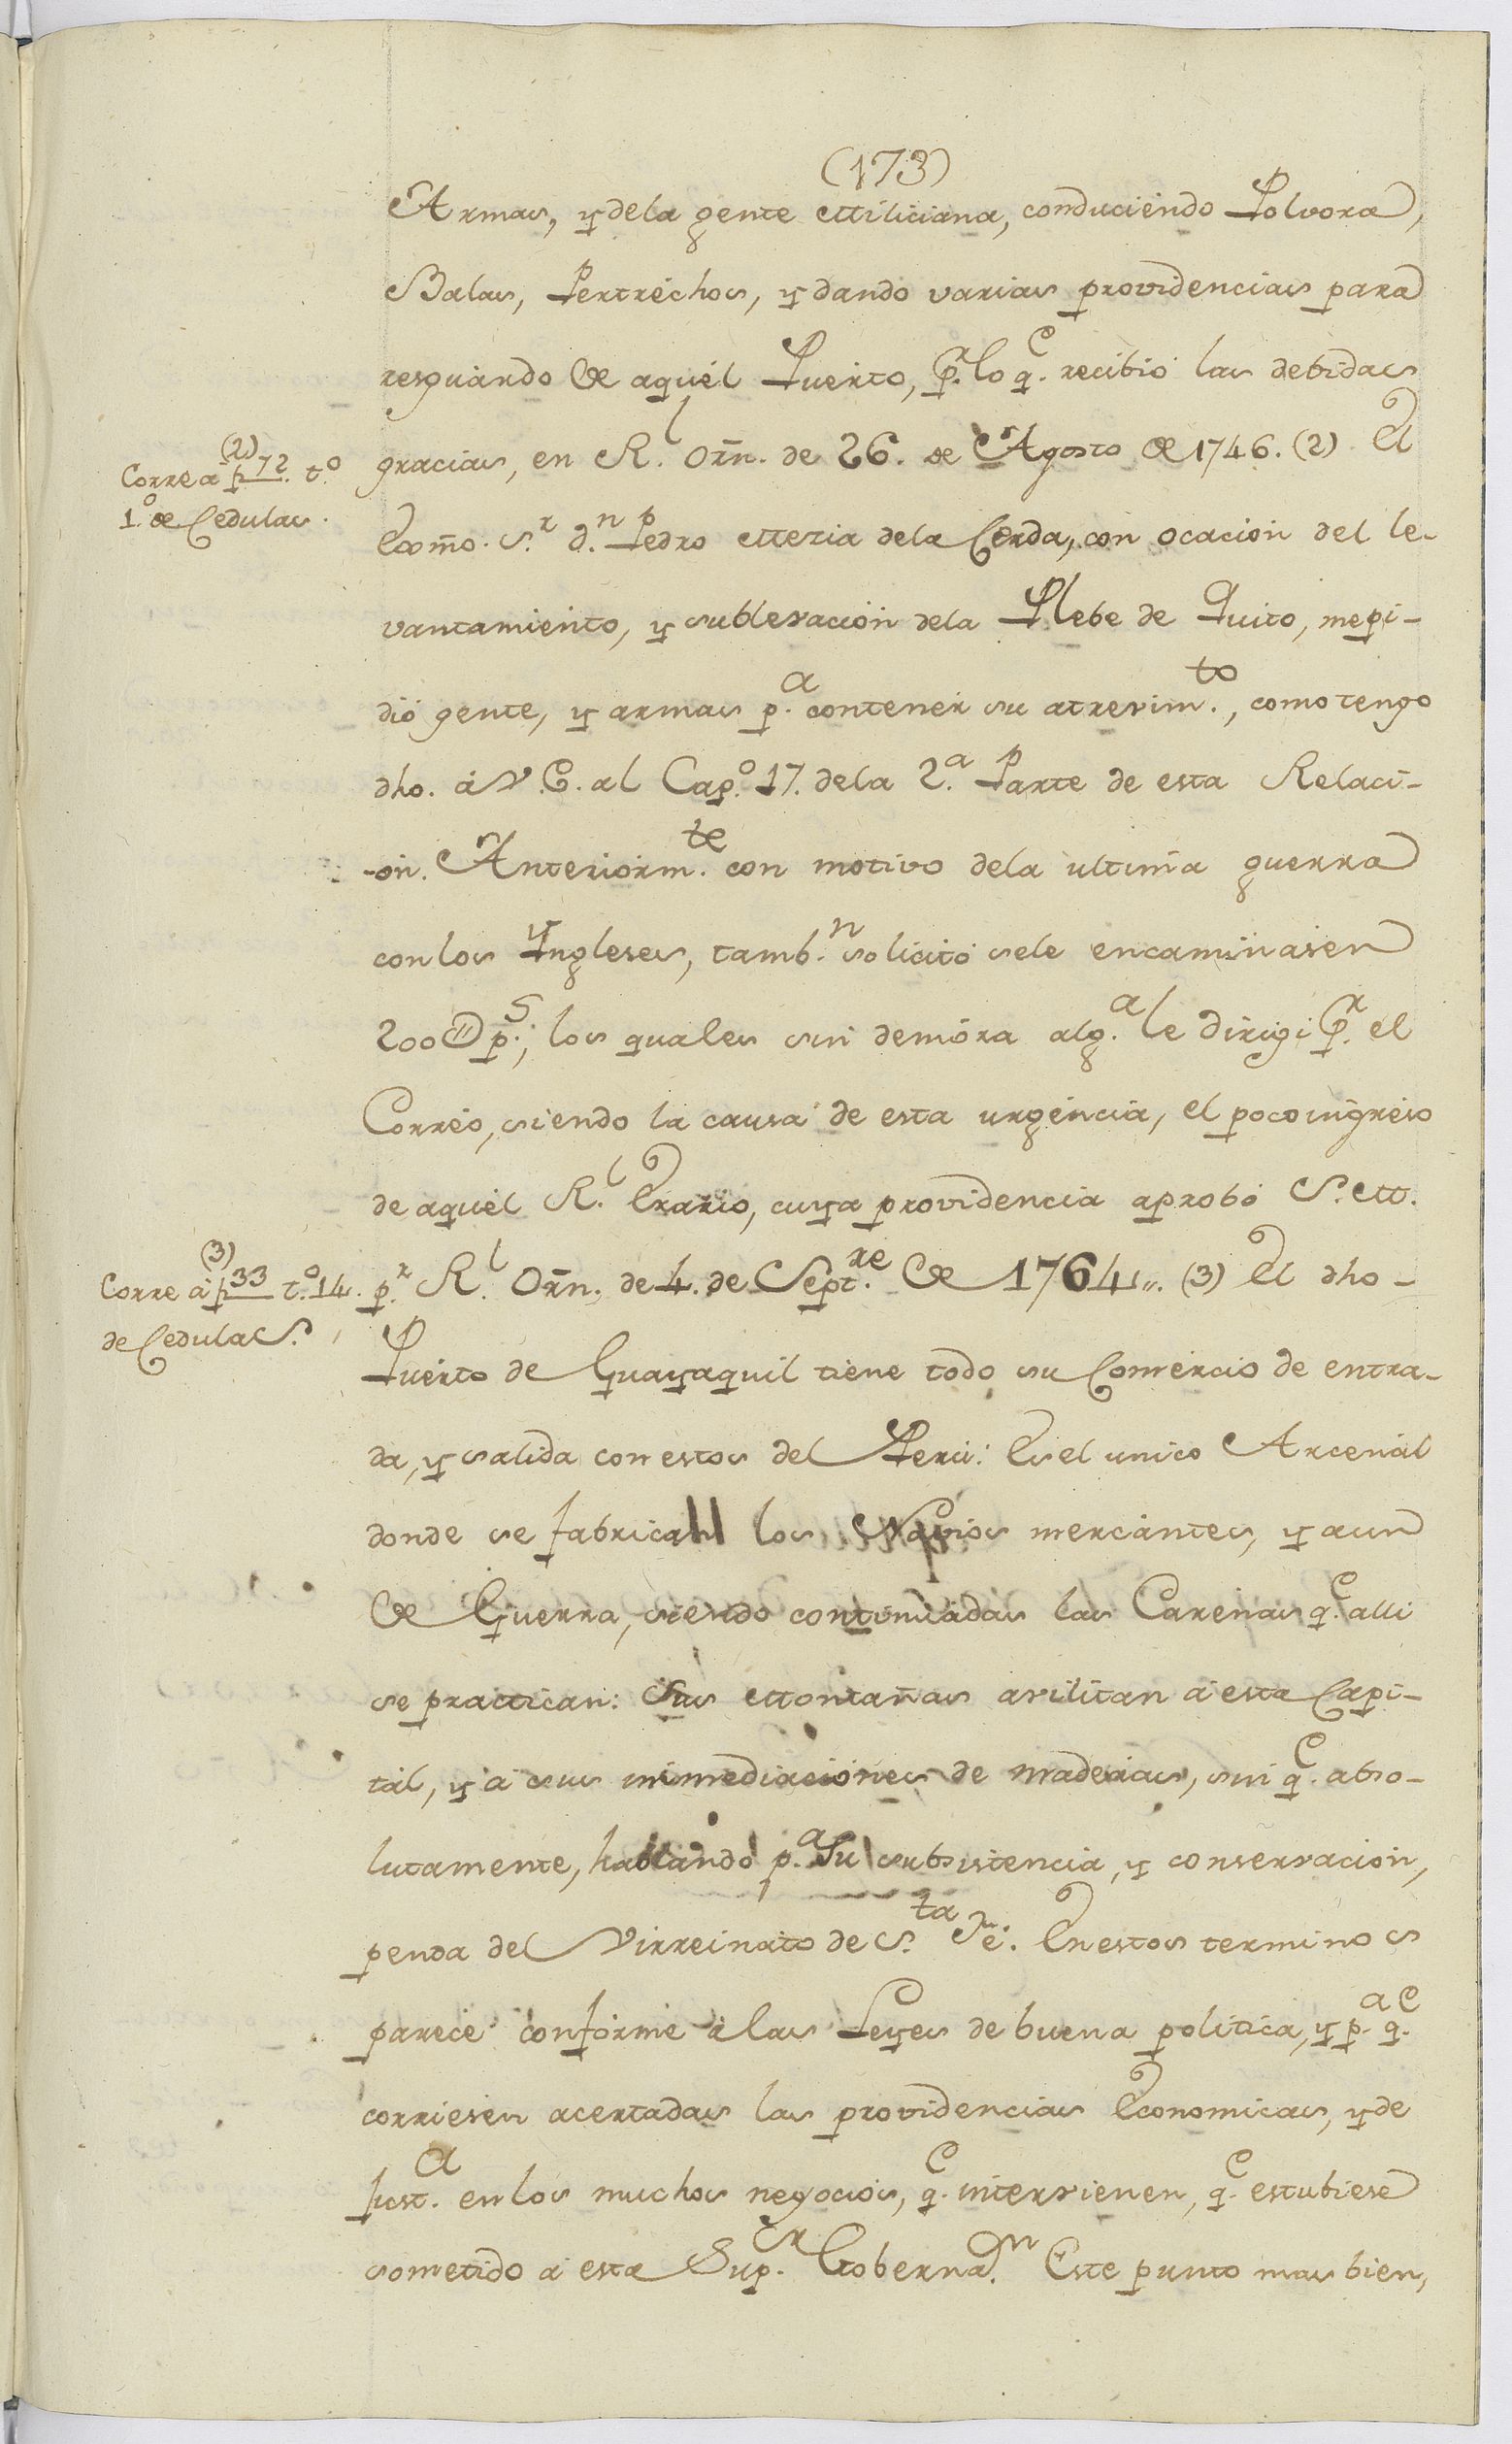 (173)
Armas, y dela gente Miliciana, conduciendo Polvora,
Balas, Pertrechos, y dando varias providencias para
resguardo de aquel Puerto, p.r lo q.e recibio las debidas
gracias, en R.l Orn. de 26. de Agosto de 1746. (2) El
(2)
Corre a f 72. t.o
1.o de Cedulas.
Exmo. S.r d.n Pedro Mexia dela Cerda, con ocacion del le-
vantamiento, y sublevacion dela Plebe de Quito, mepi-
dió gente, y armas p.a contener su atrevim.to, como tengo
dho. á V.E. al Cap.o 17. dela 2.a Parte de esta Relaci-
-on. Anteriorm.te con motivo dela ultima guerra
conlos Yngleses, tamb.n solicitó sele encaminasen
200@ p.s; los quales sin demora alg.a le dirigi p.r el
Correo, siendo la causa de esta urgencia, el poco ingreso
de aquel R.l Erario, cuya providencia aprobó S. M.
p.r R.l Orn. de 4. de Sept.re de 1764,,. (3) El dho-
(3)
Corre á f 33 t.o 14.
de Cedulas.
Puerto de Guayaquil tiene todo su Comercio de entra-
da, y salida con estos del Perú: Es el unico Arcenal
donde se fabrican los Navios mercantes, y aun
de Guerra, siendo continuadas las Carenas q.e alli
se practican: Sus Montañas avilitan á esta Capi-
tal, y á sus inmediaciones de maderas, sin q.e abso-
lutamente, hablando p.a su subsistencia, y conservacion,
penda del Virreinato de S.ta Fé. En estos terminos
parece conforme á las Leyes de buena politica, y p.a q.e
corriesen acertadas las providencias Economicas, y de
Just.a en los muchos negocios, q.e intervienen, q.e estubiese
sometido á esta Sup.or Goberna.on Este punto mas bien,